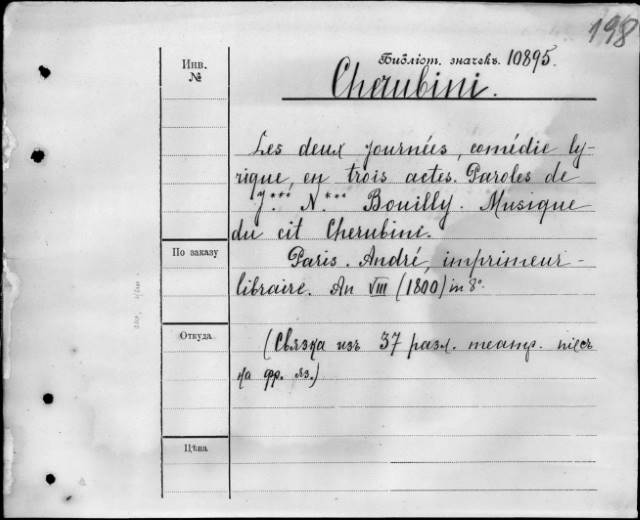 198
Инв. №
Библіот. значекъ. 10895.
Cherubini.
Les deux journées, comédie ly-
rique, en trois actes. Paroles de
J*** N*** Bouilly. Musique
du cit Cherubini.
По заказу
Paris. André, imprimeur-
libraire. An VIII (1800) in 8°.
Откуда
(Связка изъ 37 разл. театр. піесъ
на фр. яз.)
Цѣна